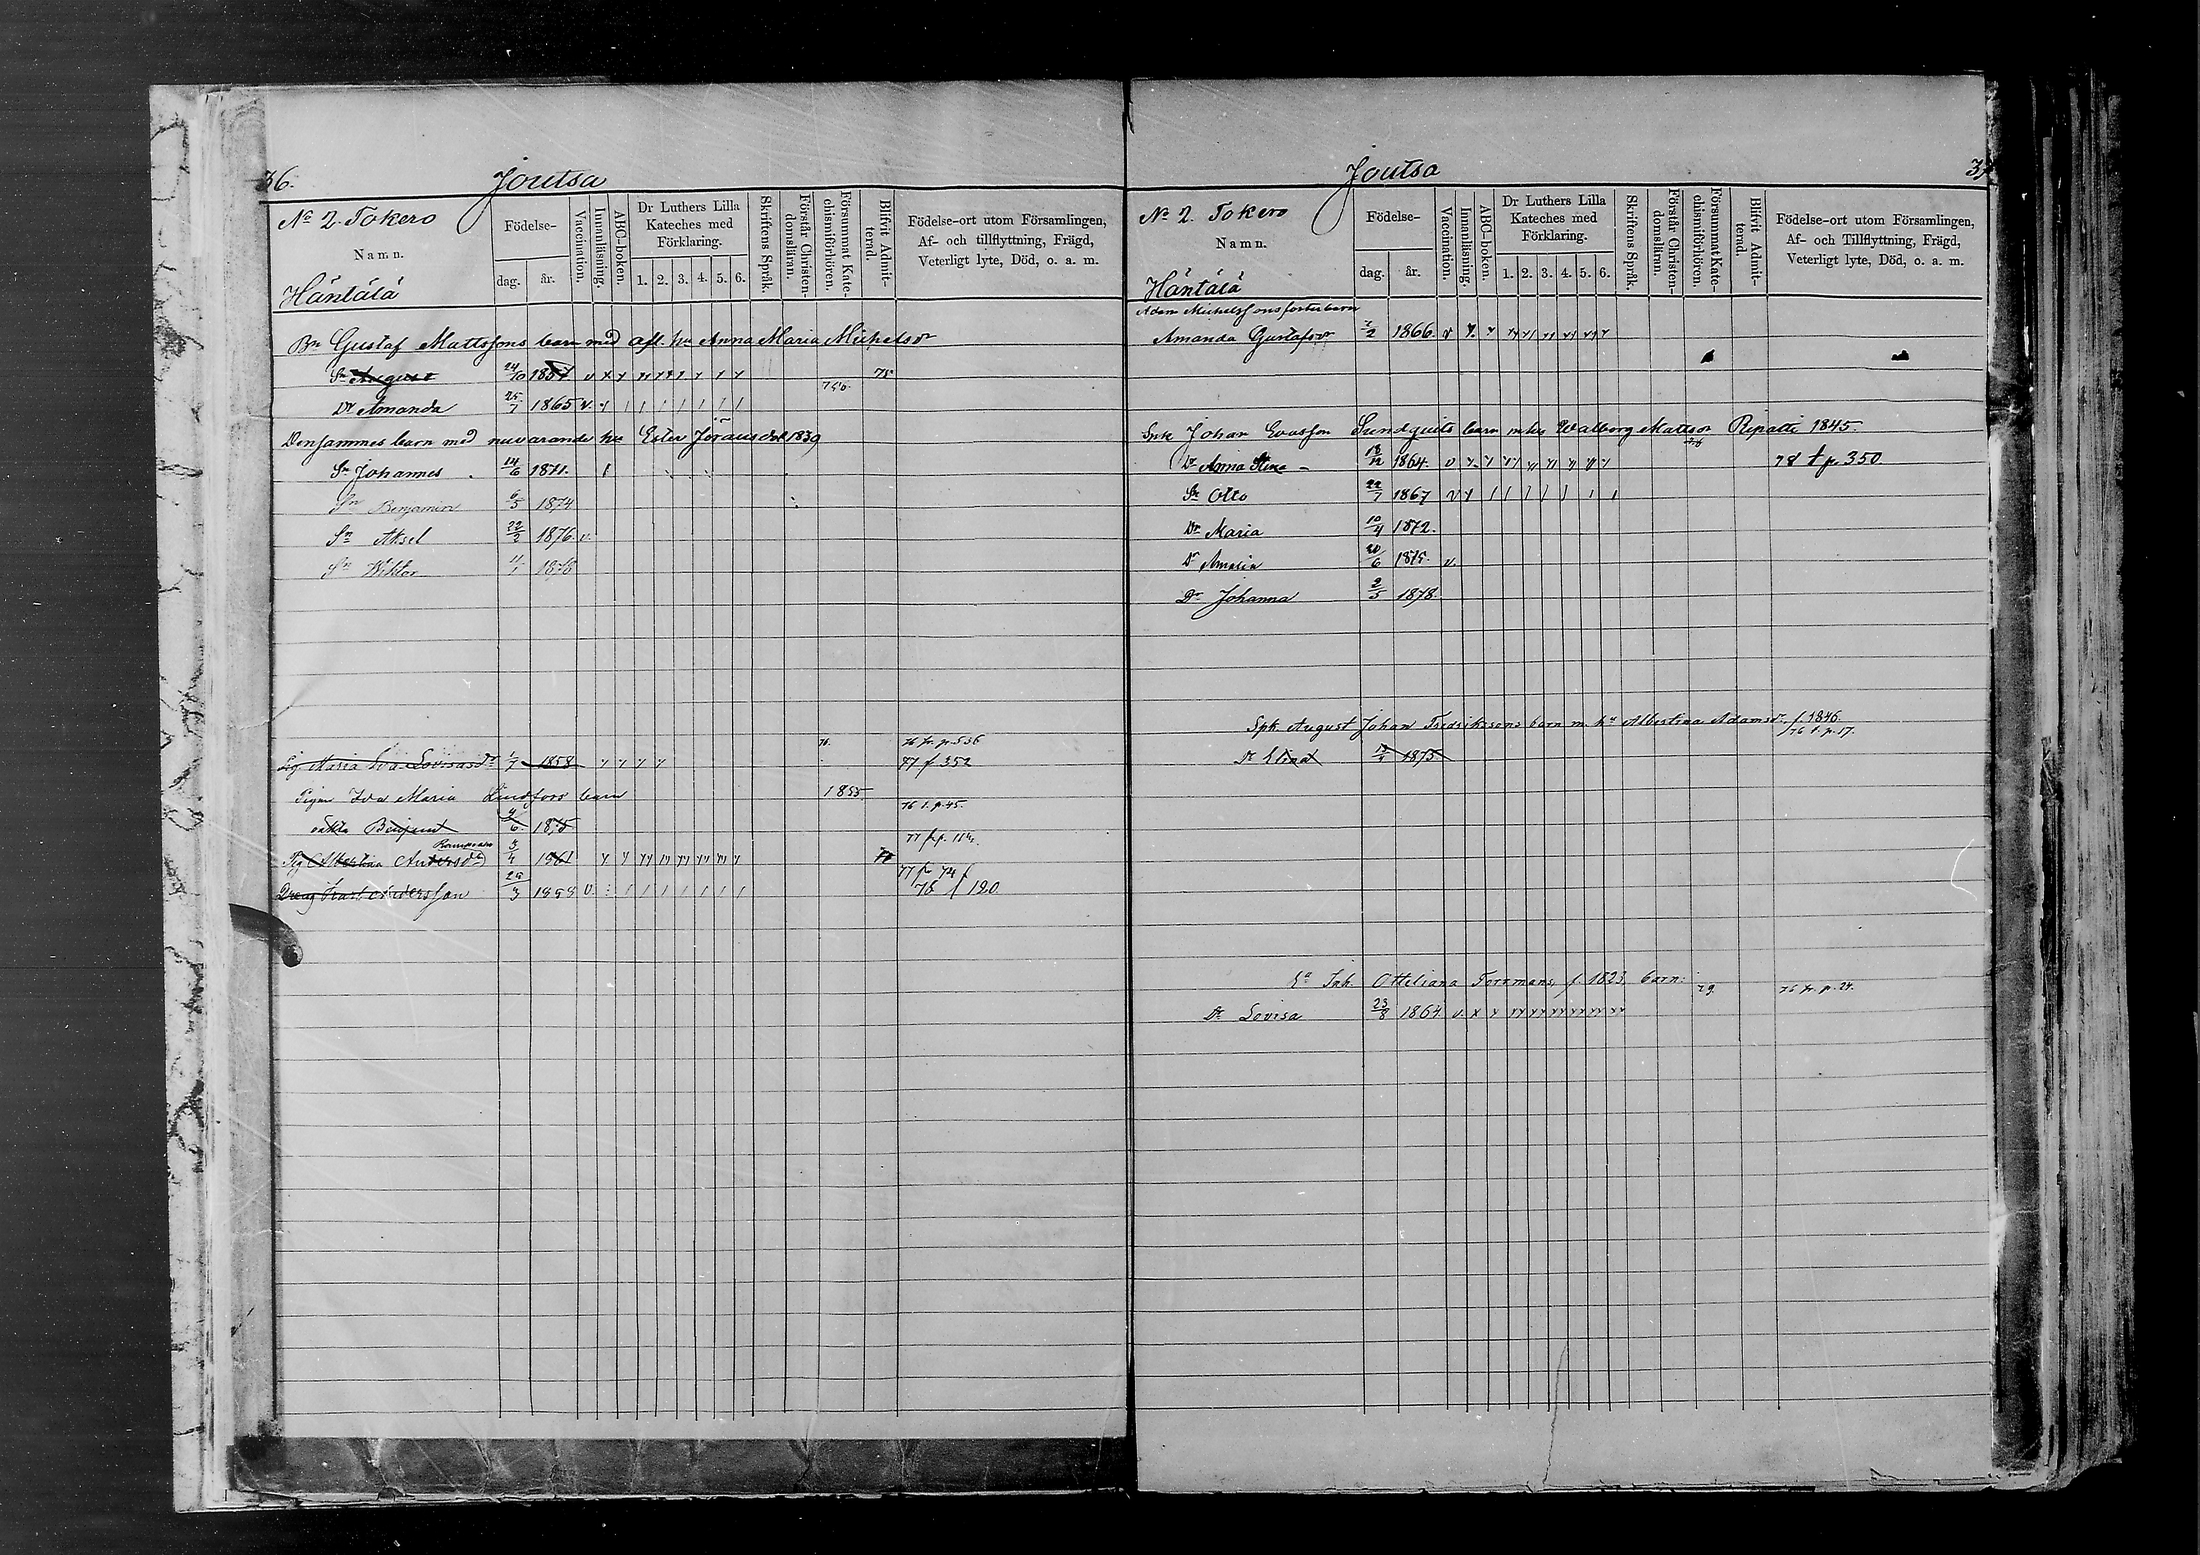 36.
Joutsa
No 2. Tokero
Namn.
Häntälä
Födelse-
dag.
år.
Vaccination.
Innanläsning.
ABC-boken.
Dr Luthers Lilla
Kateches med
Förklaring.
1. 2. 3. 4. 5. 6.
Skriftens Språk.
Förstår Christen-
domsläran.
Försummat Kate-
chismiförhören.
Blifvit Admit-
terad.
Födelse-ort utom Församlingen,
Af- och tillflyttning, Frägd,
Veterligt lyte, Död, o. a. m.
Bn Gustaf Mattssons barn med afl. hu Anna Maria Michelsdr
Sn August 24/10 1857 75
Dr Amanda 25/7 1865
Densammes barn med nuvarande hu Ester Jöransdotr 1839
Sn Johannes 14/6 1871.
Sn Benjamin 6/5 1874
Sn Aksel 22/2 1876. v.
Sn Wiktor 11/1 1878
76. 76 fr. p. 536
Pig. Maria Eva Lovisasdr 1/7 1858 77 f 352
Pigan Eva Maria Lindfors barn 1855
76 t. p. 45.
oäkta Benjamt 4/6. 1875
Pig Albertina Andersdr 3/4 1861
77 fr 74
Dreng Karl Andersson 25/3 1858 v. 78 f 120
Joutsa
37
No 2. Tokero
Namn.
Häntälä
Födelse-
dag.
år.
Vaccination.
Innanläsning.
ABC-boken.
Dr Luthers Lilla
Kateches med
Förklaring.
1. 2. 3. 4. 5. 6.
Skriftens Språk.
Förstår Christen-
domsläran.
Försummat Kate-
chismiförhören.
Blifvit Admit-
terad.
Födelse-ort utom Församlingen,
Af- och Tillflyttning, Frägd,
Veterligt lyte, Död, o. a. m.
Adam Michelssons fosterbarn
Amanda Gustafsdr 7/2 1866.
Johan Evasson Sundqvists barn m hu Walborg Mattsdr Ripatti 1845.
Dr Anna Stina 18/12 1864. 78 t p. 350.
Sn Otto 22/7 1867
Dr Maria 10/4 1872.
Dr Amalia 20/6 1875. v.
Dr Johanna 2/5 1878.
Spk. August Johan Fredrikssons barn m. hu Albertina Adamsdr f 1846.
76 t. p. 57.
Dr Elina 1875
Inh. Otteliana Forsmans, f. 1823, barn: 79. 76 fr. p. 24.
Dr Lovisa 23/8 1864